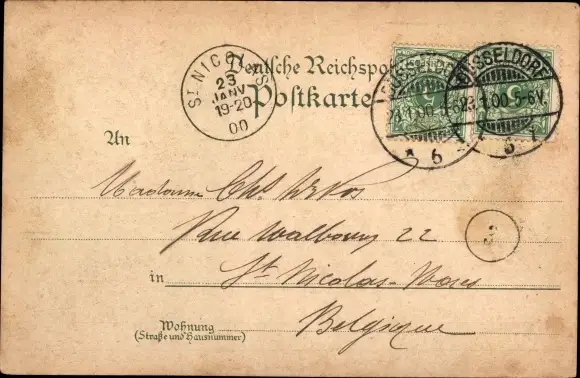 Deutsche Reichspost
Postkarte
ST NICOLAS
23
JANV
19-20
00
DÜSSELDORF
23.1.00.5-6V.
* 6
DÜSSELDORF
23.1.00.5-6V.
6
5
5
An
Madame Chs
Rue 22
in St Nicolas-Waes
Belgique
Wohnung
(Straße und Hausnummer)